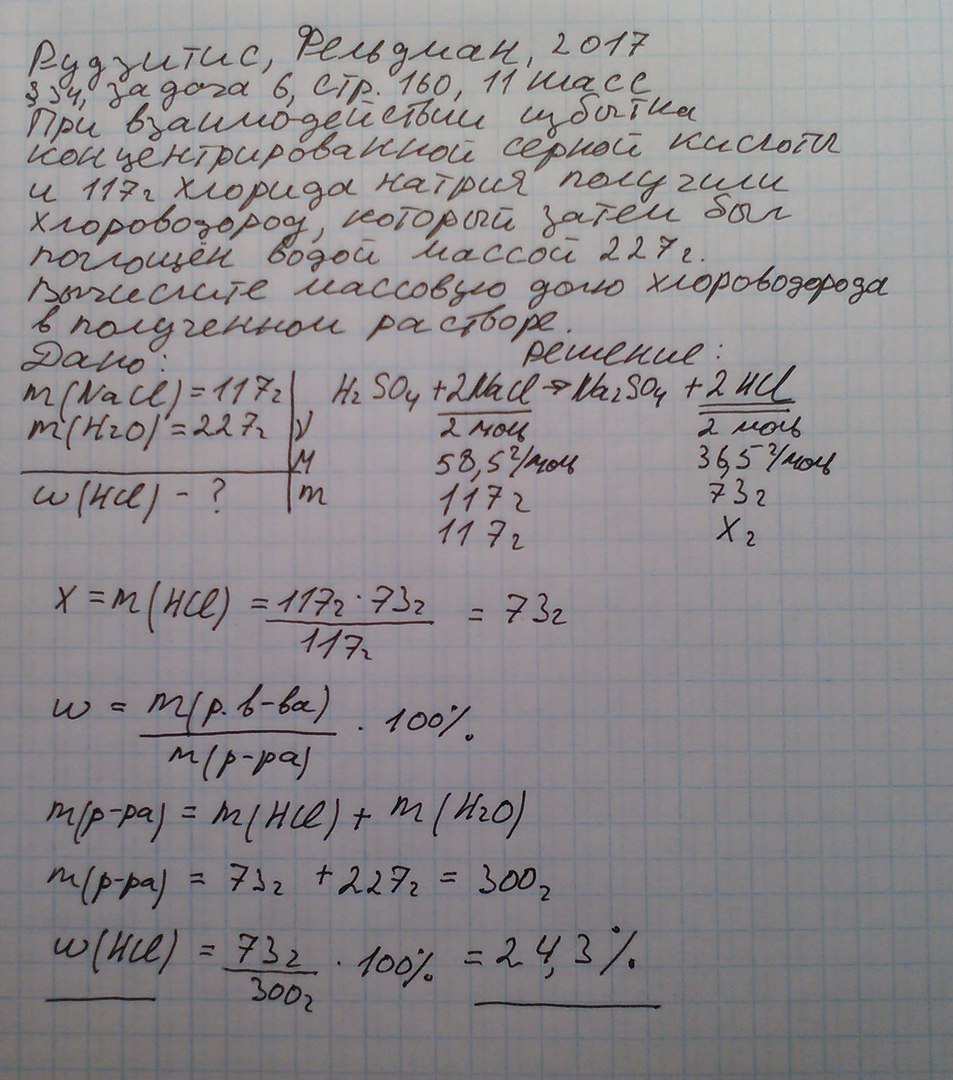 Рудзитис, Фельдман, 2017
§ 34, задача 6, стр. 160, 11 класс
При взаимодействии избытка
концентрированной серной кислоты
и 117г хлорида натрия получили
хлороводород, который затем был
поглощён водой массой 227г.
Вычислите массовую долю хлороводорода
в полученном растворе.
Дано: Решение:
m(NaCl)=117г H₂SO₄ + 2NaCl → Na₂SO₄ + 2HCl
m(H₂O)=227г ν 2 моль 2 моль
M 58,5 г/моль 36,5 г/моль
w(HCl) - ? m 117г 73г
117г X г
X = m(HCl) = 117г · 73г / 117г = 73г
w = m(р. в-ва) / m(р-ра) · 100%
m(р-ра) = m(HCl) + m(H₂O)
m(р-ра) = 73г + 227г = 300г
w(HCl) = 73г / 300г · 100% = 24,3%